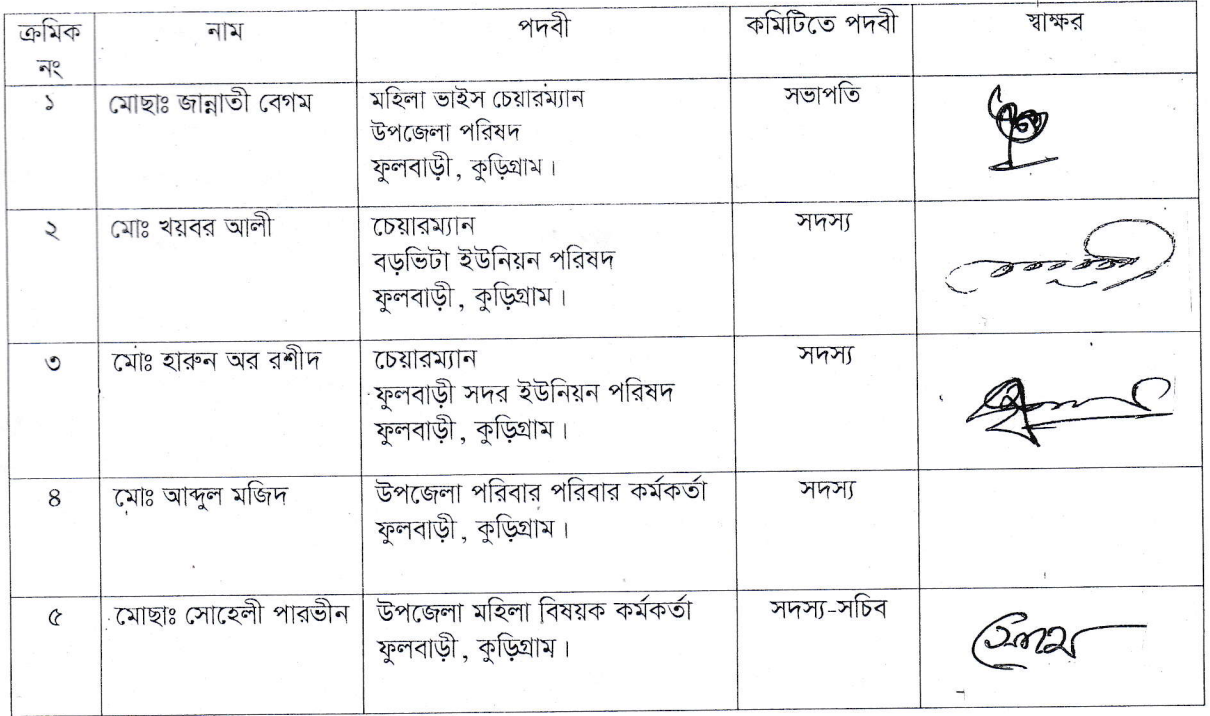 ক্রমিক নং নাম পদবী কমিটিতে পদবী স্বাক্ষর
১ মোছাঃ জান্নাতী বেগম মহিলা ভাইস চেয়ারম্যান সভাপতি
উপজেলা পরিষদ
ফুলবাড়ী, কুড়িগ্রাম।
২ মোঃ খয়বর আলী চেয়ারম্যান সদস্য
বড়ভিটা ইউনিয়ন পরিষদ
ফুলবাড়ী, কুড়িগ্রাম।
৩ মোঃ হারুন অর রশীদ চেয়ারম্যান সদস্য
ফুলবাড়ী সদর ইউনিয়ন পরিষদ
ফুলবাড়ী, কুড়িগ্রাম।
৪ মোঃ আব্দুল মজিদ উপজেলা পরিবার পরিবার কর্মকর্তা সদস্য
ফুলবাড়ী, কুড়িগ্রাম।
৫ মোছাঃ সোহেলী পারভীন উপজেলা মহিলা বিষয়ক কর্মকর্তা সদস্য-সচিব
ফুলবাড়ী, কুড়িগ্রাম।